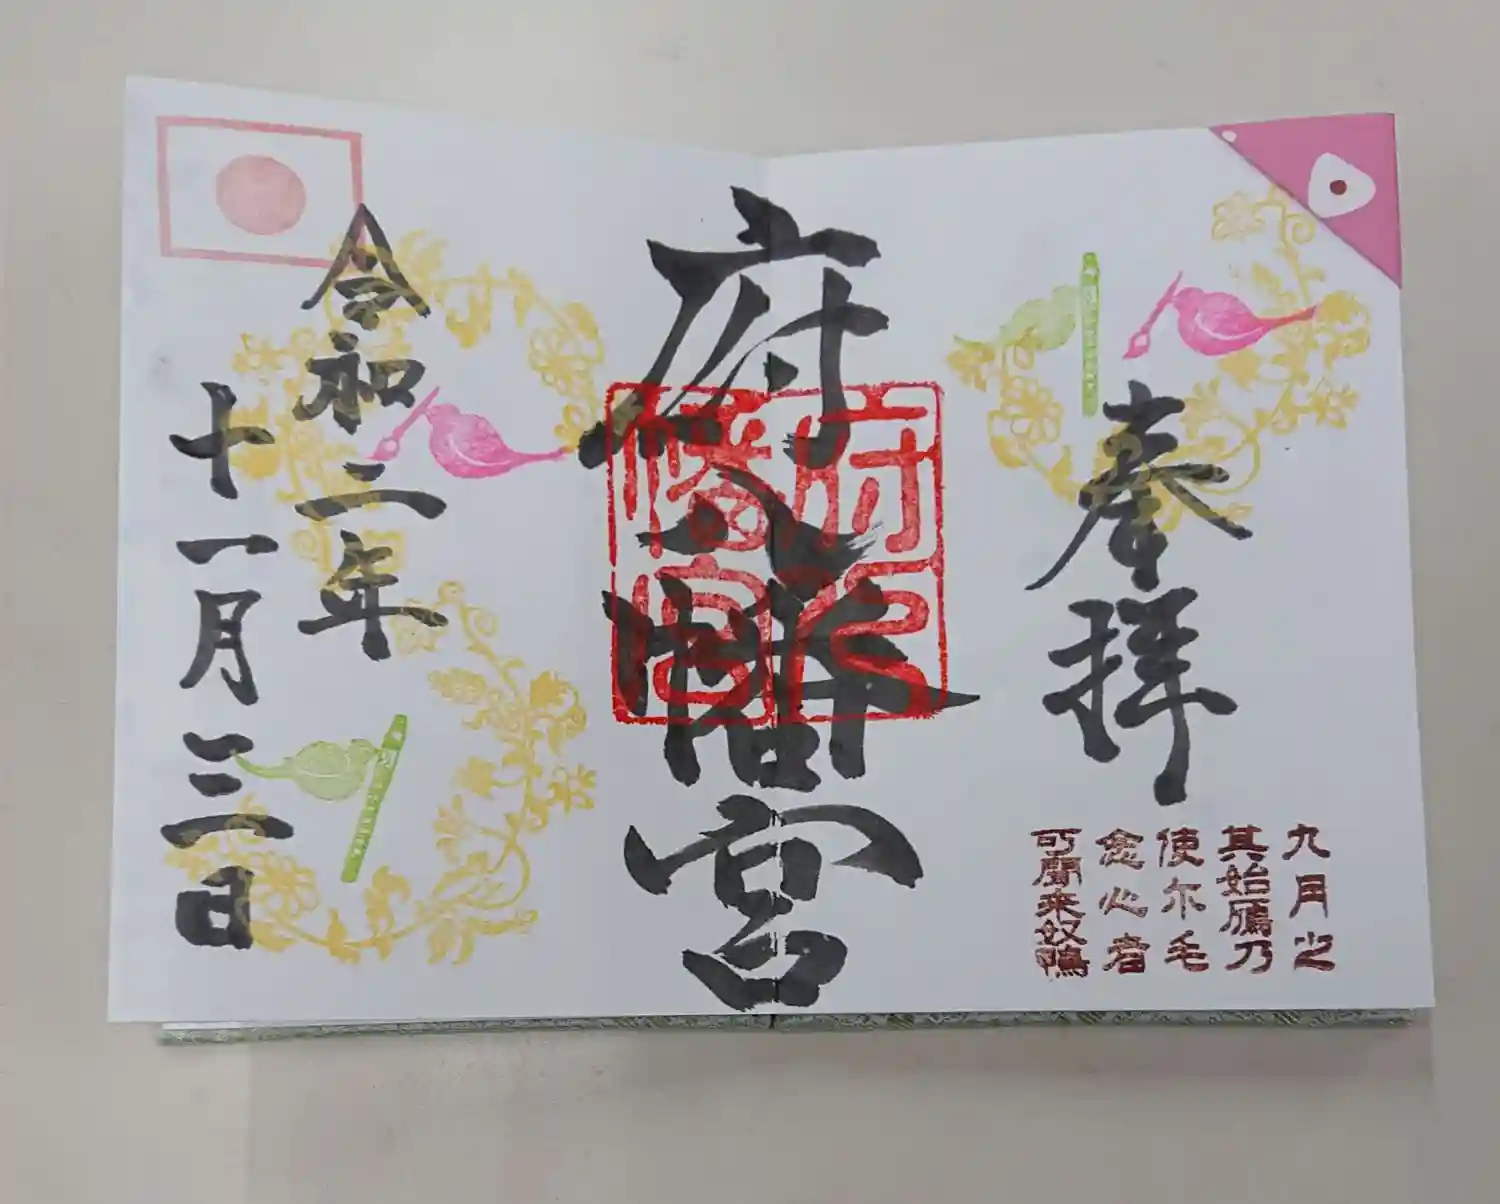 奉拝
九月之
其始鴈乃
使尓毛
念心者
可聞来奴鴨
府八幡宮
府八
幡宮
令和二年
十一月三日